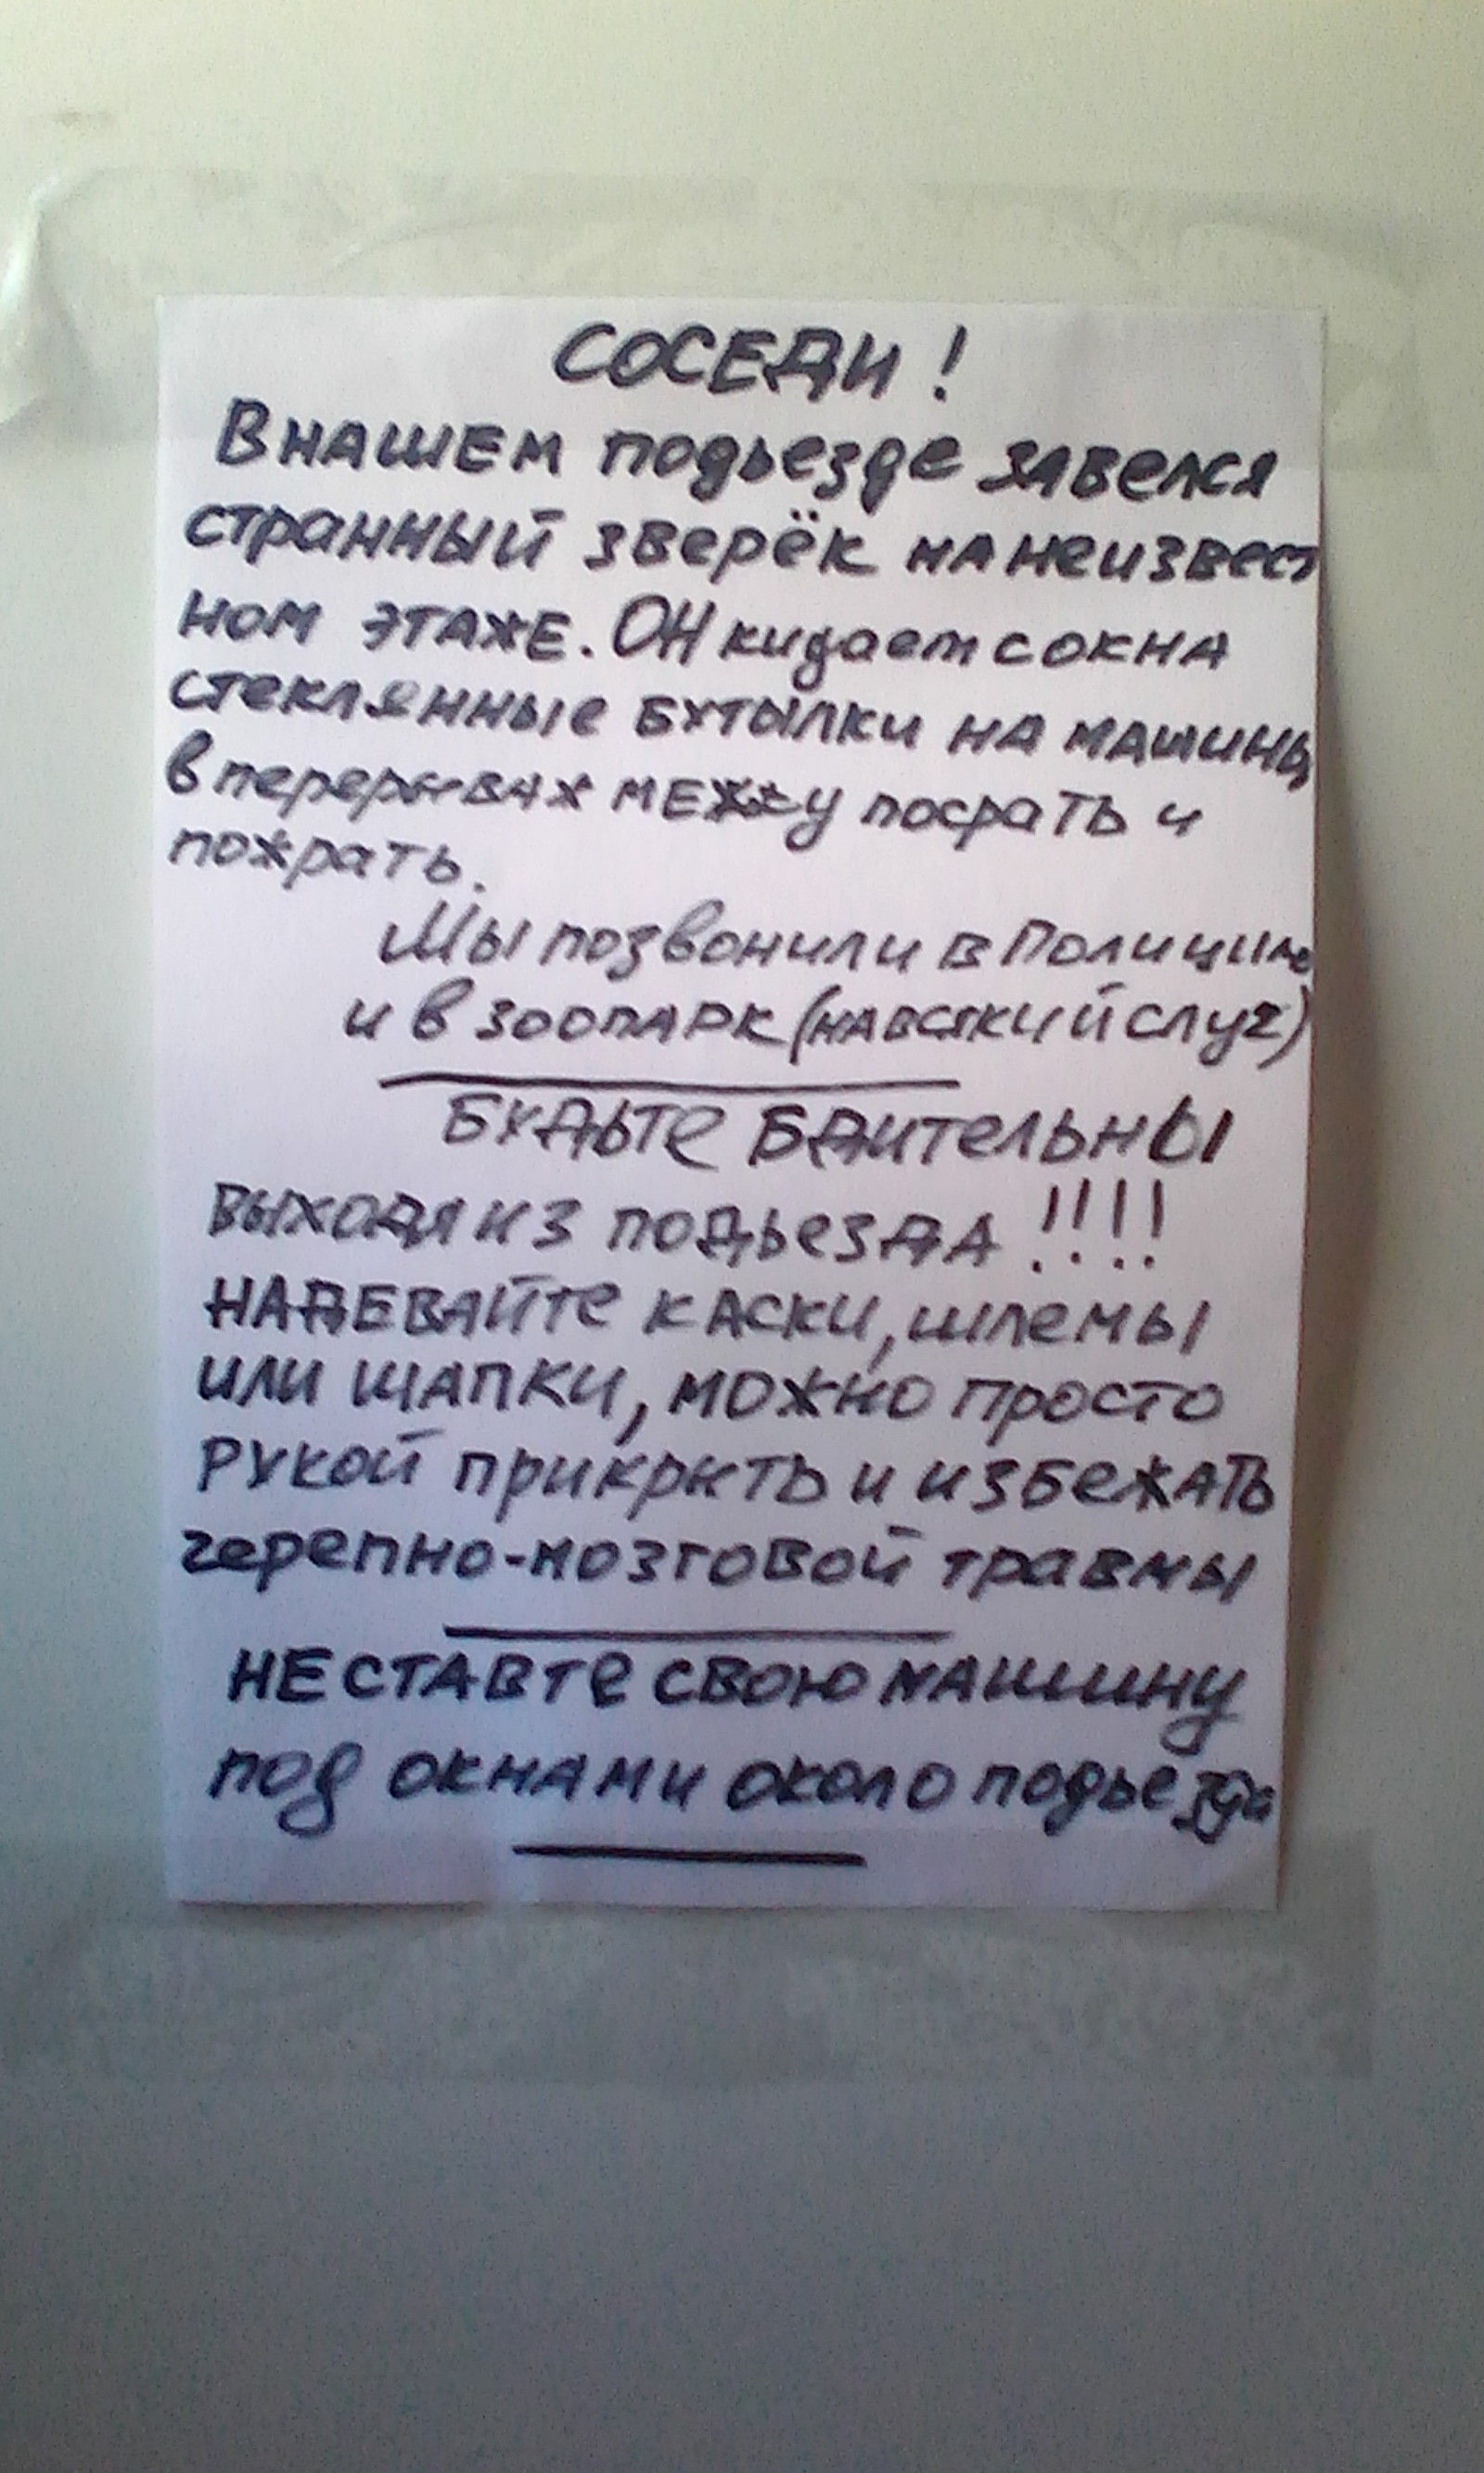 СОСЕДИ!
В НАШЕМ подьезде завелся
странный зверёк на неизвест
ном этаже. ОН кидает с окна
стеклянные бутылки на машины
в перерывах между посрать и
пожрать.
Мы позвонили в Полицию
и в зоопарк (на всякий случ)
Будьте бдительны
выходя из подьезда!!!!
НАДЕВАйте каски, шлемы
или шапки, можно просто
рукой прикрыть и избежать
черепно-мозговой травмы
НЕ СТАВТе свою машину
под окнами около подьезда